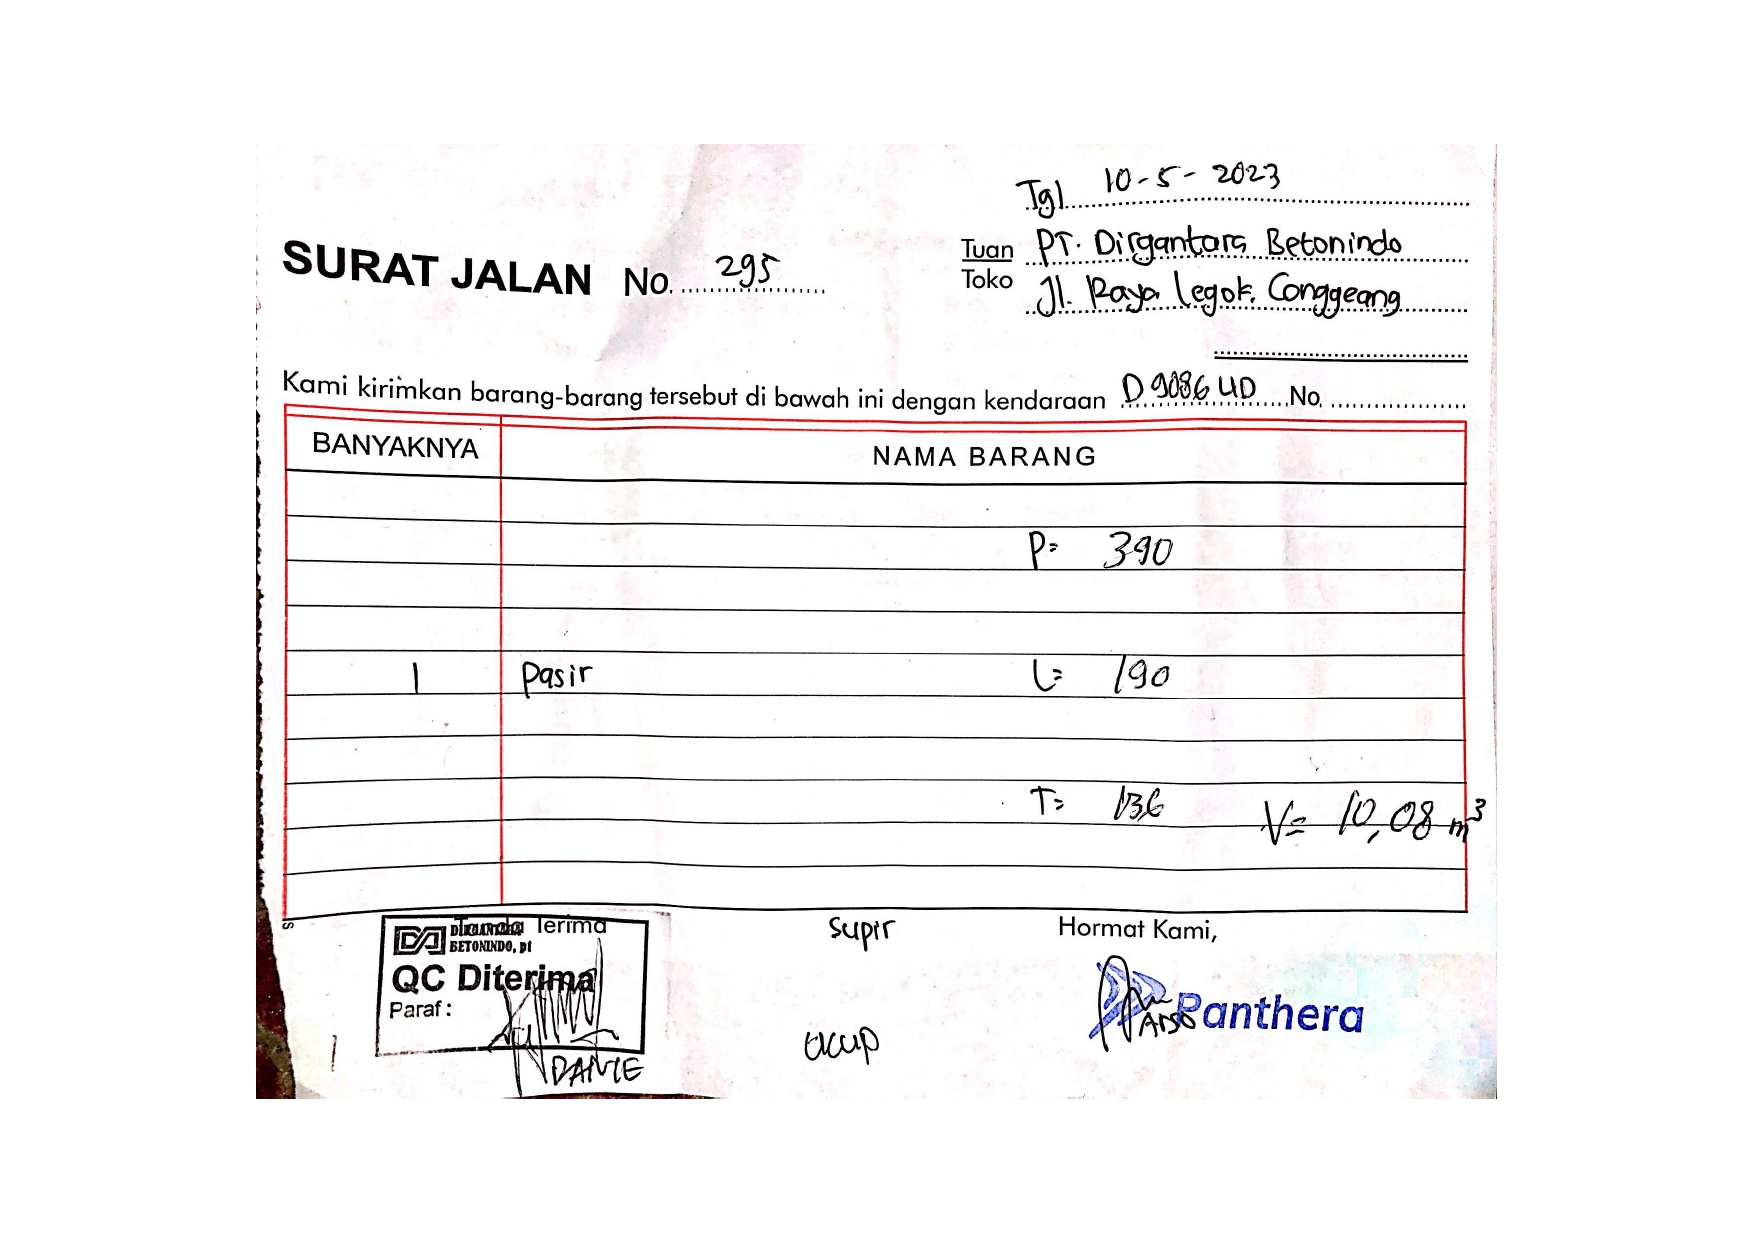 Tgl 10-5-2023
SURAT JALAN No. 295
Tuan PT. Dirgantara Betonindo
Toko Jl. Raya Legok Conggeang
Kami kirimkan barang-barang tersebut di bawah ini dengan kendaraan D 9086 UD No.
BANYAKNYA NAMA BARANG
P= 390
1 Pasir L= 190
T= 136 V= 10,08 m³
Tanda Terima Supir Hormat Kami,
DIRGANTARA
BETONINDO, pt
QC Diterima
Paraf :
Panthera
Ucup